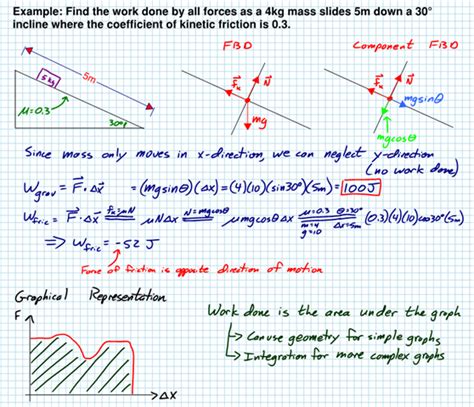 Example: Find the work done by all forces as a 4kg mass slides 5m down a 30°
incline where the coefficient of kinetic friction is 0.3.
FBD
Component FBD
5kg
5m
μ=0.3
30°
f⃗k
N⃗
mg
f⃗k
N⃗
mgsinθ
mgcosθ
Since mass only moves in x-direction, we can neglect y-direction
(no work done)
Wgrav = F⃗·Δx⃗ = (mgsinθ)(Δx) = (4)(10)(sin30°)(5m) = 100J
Wfric = F⃗·Δx⃗ fk=μN μNΔx N=mgcosθ μmgcosθΔx μ=0.3 θ=30° m=4 g=10 Δx=5m (0.3)(4)(10)cos30°(5m)
⇒ Wfric = -52 J
Force of friction is opposite direction of motion
Graphical Representation
F
ΔX
Work done is the area under the graph
↳ Can use geometry for simple graphs
↳ Integration for more complex graphs